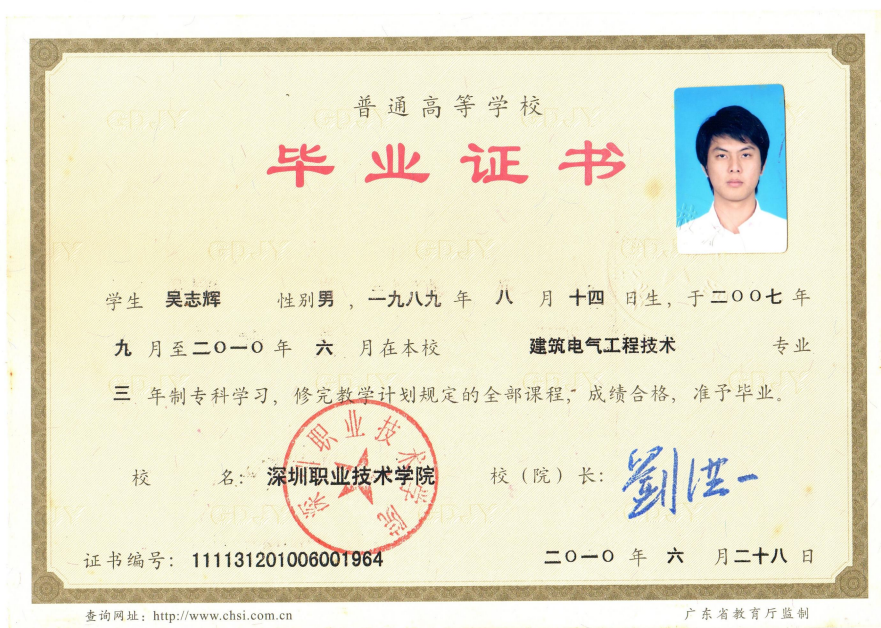 普通高等学校
毕业证书
学生 吴志辉 性别男，一九八九年 八 月十四日生，于二〇〇七年
九月至二〇一〇年 六 月在本校 建筑电气工程技术 专业
三 年制专科学习，修完教学计划规定的全部课程，成绩合格，准予毕业。
校 名：深圳职业技术学院 校（院）长：劉洪一
深圳职业技术学院
证书编号：111131201006001964 二〇一〇年 六 月二十八日
查询网址：http://www.chsi.com.cn 广东省教育厅监制
GDJY